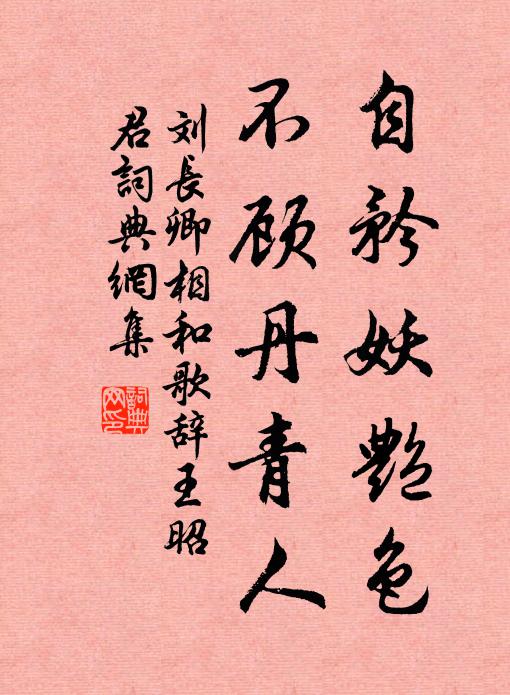 自矜妖艶色
不顾丹青人
刘長卿相和歌辞王昭
君詞典網集
詞典
网印